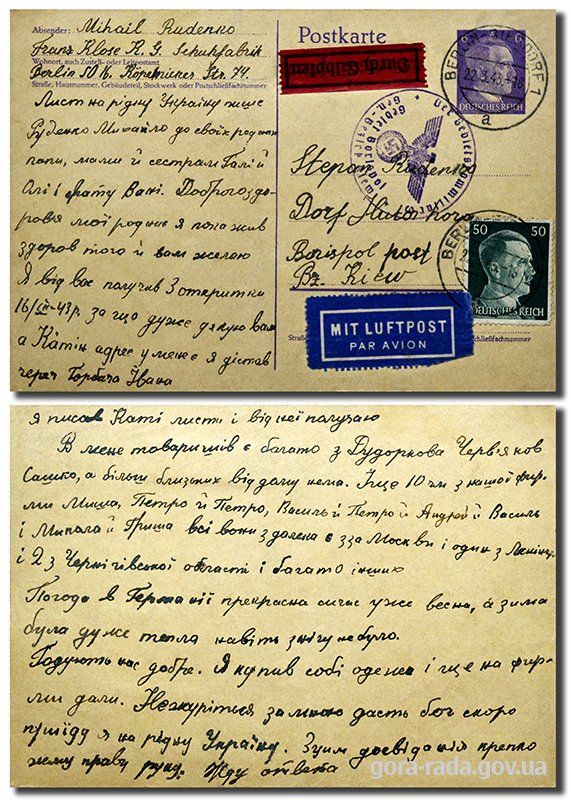 Absender: Mihail Rudenko
Franz Klose K. G. Schuhfabrik
Wohnort, auch Zustell- oder Leitpostamt
Berlin SO 16.Köpenicker Str. 74.
Straße, Hausnummer, Gebäudeteil, Stockwerk oder Postschließfachnummer
Лист на рідну Україну пише
Руденко Михайло до своїх родних
папи, мами й сестрам Галі й
Олі і брату Вані. Доброго здо-
ровя мої родние я пока жив
здоров того й вам желаю
Я від вас получив 3 откритки
16/III-43р. за що дуже дякую вам
а Катін адрес у мене є я дістав
через Горбача Йвана
Postkarte
Durch Eilboten
BERLIN-BIESDORF 1
22.3.43.-18
a
DEUTSCHES REICH
Stepan Rudenko
Dorf
Borispol post
Bz. Kiew
50 50
DEUTSCHES REICH
MIT LUFTPOST
PAR AVION
я писав Каті листи і від неї получаю
В мене товаришів є багато з Дудоркова Черв'яков
Сашко, а більш близьких від дому нема. Іще 10 чл з нашої фир-
ми Миша, Петро й Петро, Василь й Петро й Андрей й Василь
і Микола й Гриша всі вони здалека є з за Москви і один з
і 2 з Чернігівської області і багато інших
Погода в Германії прекрасна сичас уже весна, а зима
була дуже тепла навіть снігу не було.
Годують нас добре. Я купив собі одежі і ще на фир-
ми дали. Нежуріться за мною дасть бог скоро
приїду я на рідну Україну. Зцим досвіданія крепко
жму праву руку. Жду ответа
gora-rada.gov.ua